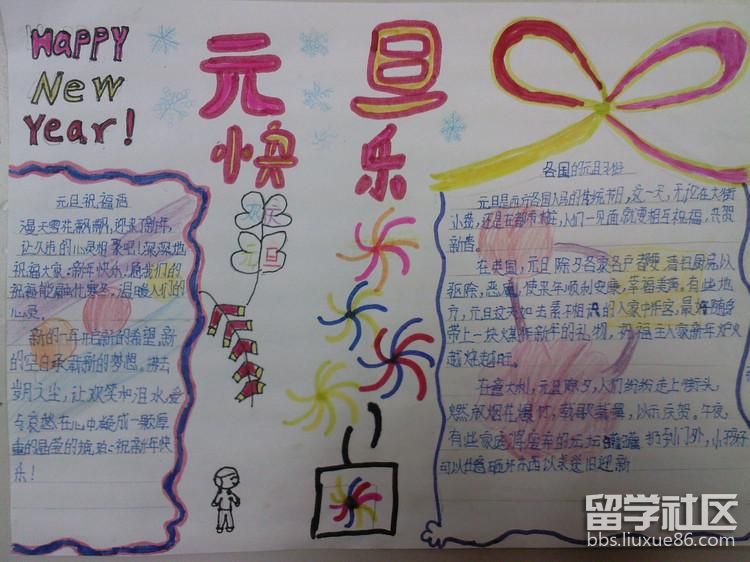 HAPPY
New
Year!
元旦
快乐
元旦祝福语
漫天雪花飘飘,迎来了新年,
让久违的心灵相聚吧!深深地
祝福大家:新年快乐!愿我们的
祝福能融化寒冬,温暖人们的
心灵。
新的一年开启新的希望,新
的空白承载新的梦想。拂去
岁月之尘,让欢笑和泪水、爱
与哀愁在心中凝成一颗厚
重的晶莹的 祝新年快
乐!
欢庆
元旦
各国的元旦习俗
元旦是世界各国人民的传统节日,这一天,无论在大街
小巷,还是在都市 人们一见面就要相互祝福,共贺
新春。
在英国,元旦除夕各家各户都要清扫厨房以
驱除,恶 使来年顺利安康,幸福美满。有些地
方,元旦 如去素不相 的人家中作客,最好随身
带上一块煤作新年的礼物,祝福主人家新年炉火
越烧越旺。
在意大利,元旦除夕,人们纷纷走上街头,
燃放烟花爆竹,载歌载舞,以示庆贺。午夜,
有些家 扔到门外,小孩子
可以 砸坏东西以求送旧迎新
留学社区
bbs.liuxue86.com